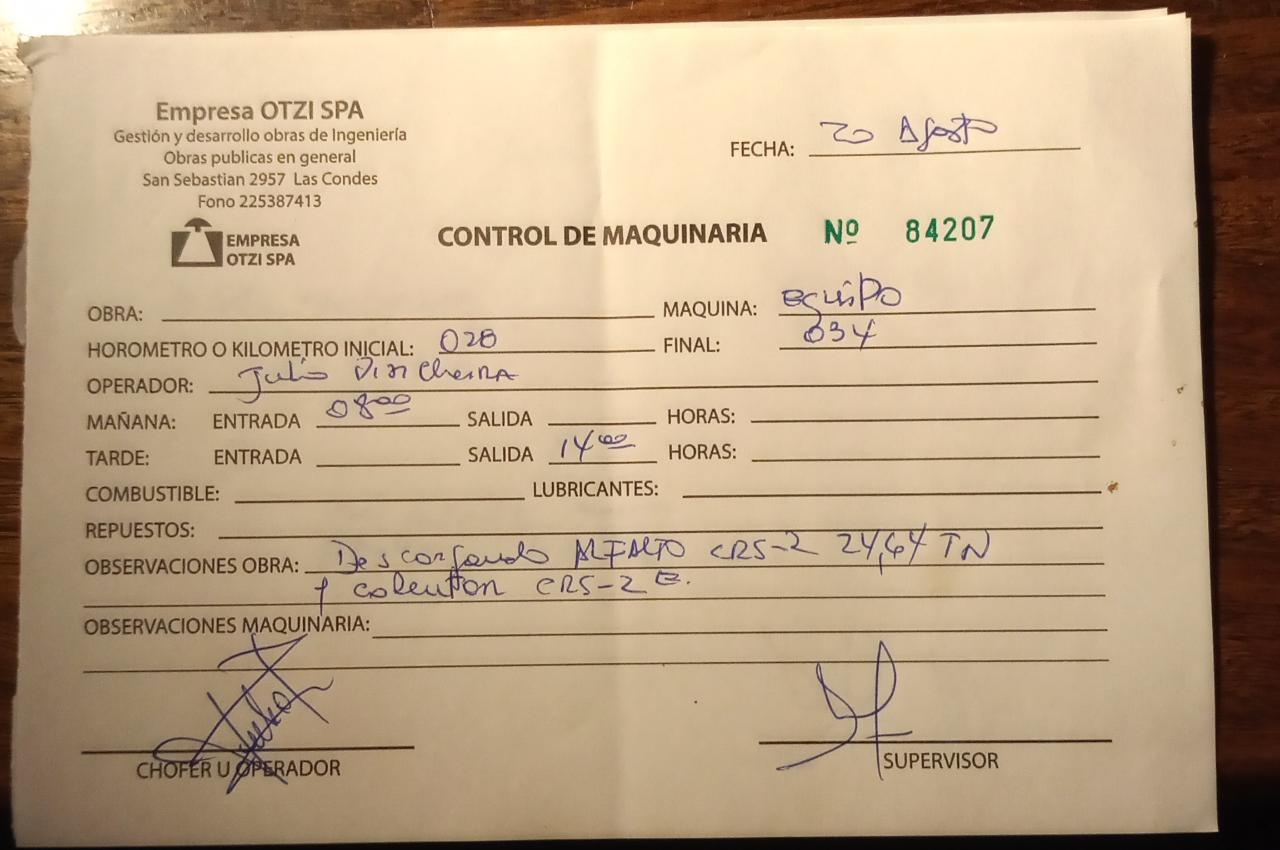 Empresa OTZI SPA
Gestión y desarrollo obras de Ingeniería
Obras publicas en general
San Sebastian 2957 Las Condes
Fono 225387413
FECHA: 20 Agosto
EMPRESA
OTZI SPA
CONTROL DE MAQUINARIA Nº 84207
OBRA: MAQUINA: equipo
HOROMETRO O KILOMETRO INICIAL: 028 FINAL: 034
OPERADOR: Julio
MAÑANA: ENTRADA 0800 SALIDA HORAS:
TARDE: ENTRADA SALIDA 1400 HORAS:
COMBUSTIBLE: LUBRICANTES:
REPUESTOS:
OBSERVACIONES OBRA: Descargando CRS-2 24,64 TN
y CRS-2 E.
OBSERVACIONES MAQUINARIA:
CHOFER U OPERADOR
SUPERVISOR